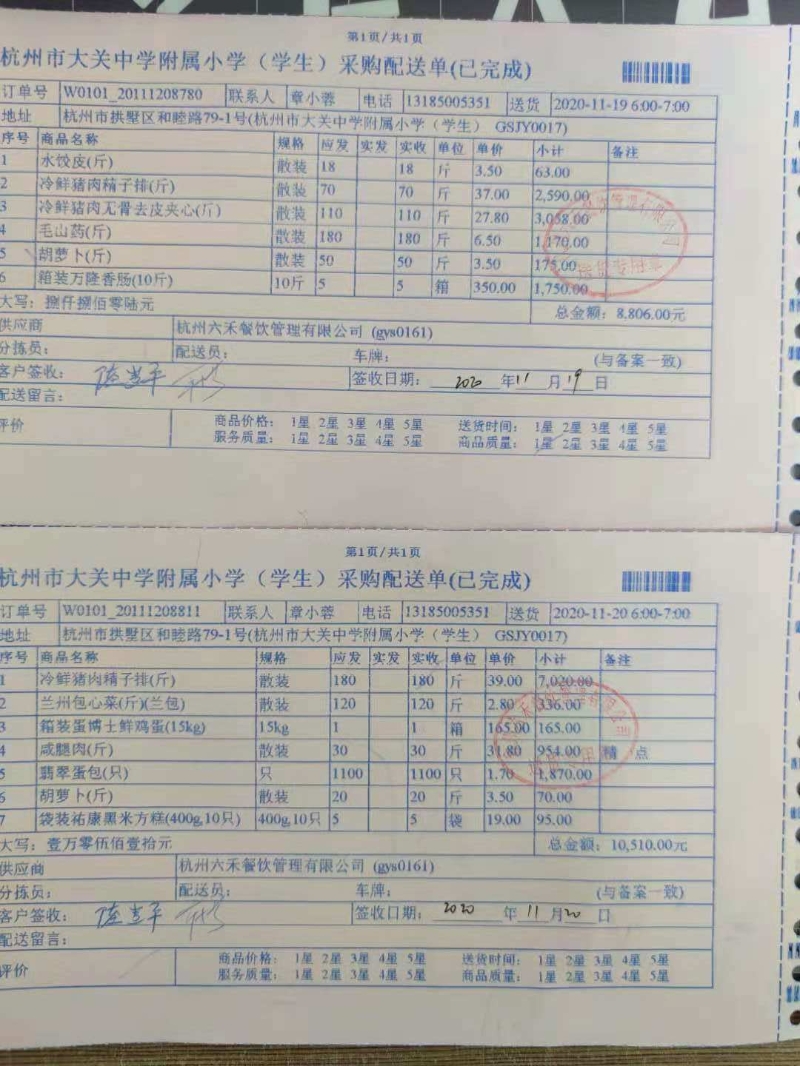 第1页/共1页
杭州市大关中学附属小学（学生）采购配送单(已完成)
订单号 W0101_20111208780 联系人 章小蓉 电话 13185005351 送货 2020-11-19 6:00-7:00
地址 杭州市拱墅区和睦路79-1号(杭州市大关中学附属小学（学生） GSJY0017)
序号 商品名称 规格 应发 实发 实收 单位 单价 小计 备注
1 水饺皮(斤) 散装 18 18 斤 3.50 63.00
2 冷鲜猪肉精子排(斤) 散装 70 70 斤 37.00 2,590.00
3 冷鲜猪肉无骨去皮夹心(斤) 散装 110 110 斤 27.80 3,058.00
4 毛山药(斤) 散装 180 180 斤 6.50 1,170.00
5 胡萝卜(斤) 散装 50 50 斤 3.50 175.00
6 箱装万隆香肠(10斤) 10斤 5 5 箱 350.00 1,750.00
大写：捌仟捌佰零陆元 总金额：8,806.00元
供应商 杭州六禾餐饮管理有限公司 (gys0161)
分拣员： 配送员： 车牌： (与备案一致)
客户签收： 签收日期： 2020 年 11 月 19 日
配送留言：
评价 商品价格： 1星 2星 3星 4星 5星 送货时间： 1星 2星 3星 4星 5星
服务质量： 1星 2星 3星 4星 5星 商品质量： 1星 2星 3星 4星 5星
第1页/共1页
杭州市大关中学附属小学（学生）采购配送单(已完成)
订单号 W0101_20111208811 联系人 章小蓉 电话 13185005351 送货 2020-11-20 6:00-7:00
地址 杭州市拱墅区和睦路79-1号(杭州市大关中学附属小学（学生） GSJY0017)
序号 商品名称 规格 应发 实发 实收 单位 单价 小计 备注
1 冷鲜猪肉精子排(斤) 散装 180 180 斤 39.00 7,020.00
2 兰州包心菜(斤)(兰包) 散装 120 120 斤 2.80 336.00
3 箱装蛋博士鲜鸡蛋(15kg) 15kg 1 1 箱 165.00 165.00
4 咸腿肉(斤) 散装 30 30 斤 31.80 954.00 精 点
5 翡翠蛋包(只) 只 1100 1100 只 1.70 1,870.00
6 胡萝卜(斤) 散装 20 20 斤 3.50 70.00
7 袋装祐康黑米方糕(400g,10只) 400g,10只 5 5 袋 19.00 95.00
大写：壹万零伍佰壹拾元 总金额：10,510.00元
供应商 杭州六禾餐饮管理有限公司 (gys0161)
分拣员： 配送员： 车牌： (与备案一致)
客户签收： 签收日期： 2020 年 11 月 20 日
配送留言：
评价 商品价格： 1星 2星 3星 4星 5星 送货时间： 1星 2星 3星 4星 5星
服务质量： 1星 2星 3星 4星 5星 商品质量： 1星 2星 3星 4星 5星